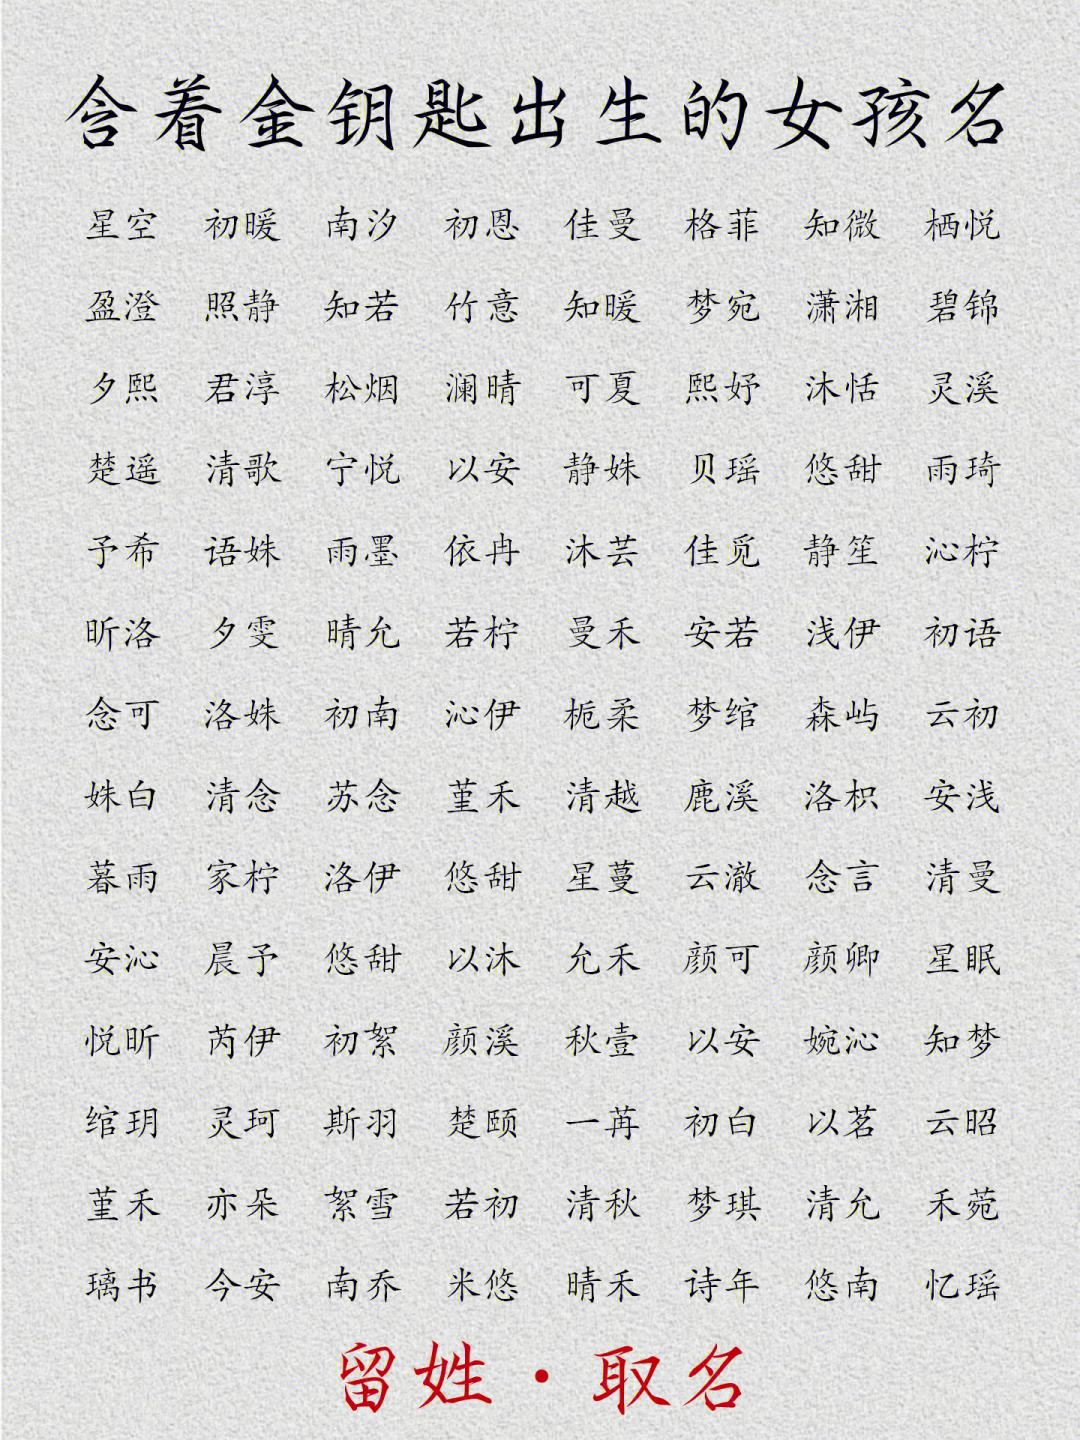 含着金钥匙出生的女孩名
星空 初暖 南汐 初恩 佳曼 格菲 知微 栖悦
盈澄 照静 知若 竹意 知暖 梦宛 潇湘 碧锦
夕熙 君淳 松烟 澜晴 可夏 熙妤 沐恬 灵溪
楚遥 清歌 宁悦 以安 静姝 贝瑶 悠甜 雨琦
予希 语姝 雨墨 依冉 沐芸 佳觅 静笙 沁柠
昕洛 夕雯 晴允 若柠 曼禾 安若 浅伊 初语
念可 洛姝 初南 沁伊 栀柔 梦绾 森屿 云初
姝白 清念 苏念 堇禾 清越 鹿溪 洛枳 安浅
暮雨 家柠 洛伊 悠甜 星蔓 云澈 念言 清曼
安沁 晨予 悠甜 以沐 允禾 颜可 颜卿 星眠
悦昕 芮伊 初絮 颜溪 秋壹 以安 婉沁 知梦
绾玥 灵珂 斯羽 楚颐 一苒 初白 以茗 云昭
堇禾 亦朵 絮雪 若初 清秋 梦琪 清允 禾菀
璃书 今安 南乔 米悠 晴禾 诗年 悠南 忆瑶
留姓·取名